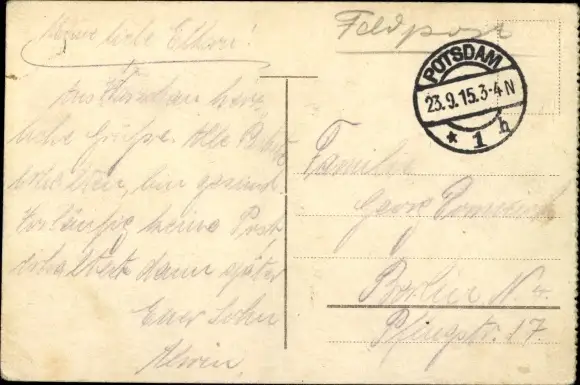 Meine liebe Eltern!
Aus herz
liche Grüße. Alle
erhalten, bin gesund
Vorläufig keine Post
dann später
Euer Sohn
Alwin
Feldpost
POTSDAM
23.9.15.3-4N
* 1 h
Familie
Georg
Berlin N. 4.
Pflugstr. 17.